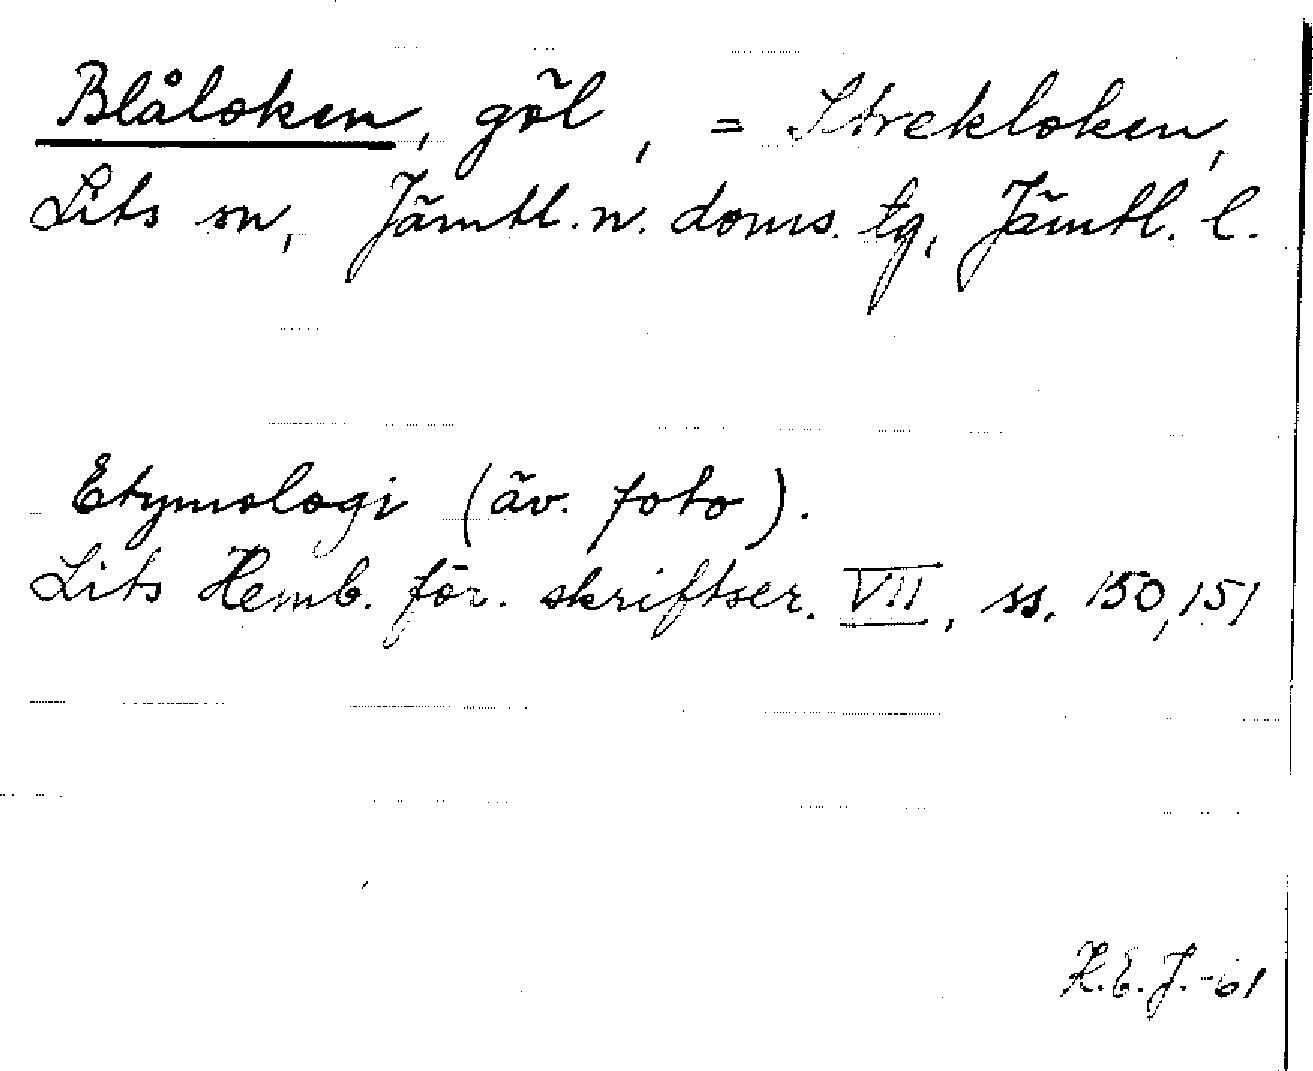 Blåloken, göl, = Strekloken,
Lits sn, Jämtl. n. doms. tg, Jämtl. l.
Etymologi (äv. foto).
Lits Hemb. för. skriftser. VII, ss. 150, 151
K.E.J. -61